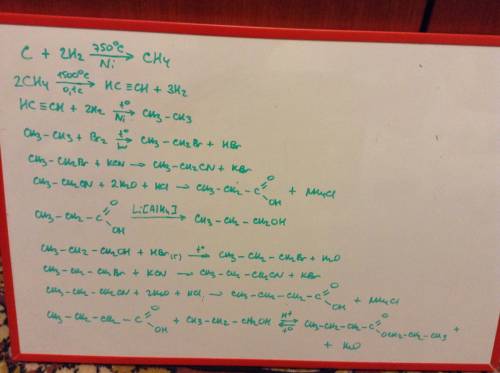 C + 2H₂ 750°C/Ni → CH₄
2CH₄ 1500°C/0,1c → HC≡CH + 3H₂
HC≡CH + 2H₂ t°/Ni → CH₃-CH₃
CH₃-CH₃ + Br₂ t°/hν → CH₃-CH₂Br + HBr
CH₃-CH₂Br + KCN → CH₃-CH₂CN + KBr
CH₃-CH₂CN + 2H₂O + HCl → CH₃-CH₂-C(=O)OH + NH₄Cl
CH₃-CH₂-C(=O)OH Li[AlH₄] → CH₃-CH₂-CH₂OH
CH₃-CH₂-CH₂OH + HBr(г) t° → CH₃-CH₂-CH₂Br + H₂O
CH₃-CH₂-CH₂Br + KCN → CH₃-CH₂-CH₂CN + KBr
CH₃-CH₂-CH₂CN + 2H₂O + HCl → CH₃-CH₂-CH₂-C(=O)OH + NH₄Cl
CH₃-CH₂-CH₂-C(=O)OH + CH₃-CH₂-CH₂OH H⁺/t° ⇌ CH₃-CH₂-CH₂-C(=O)OCH₂-CH₂-CH₃ +
+ H₂O